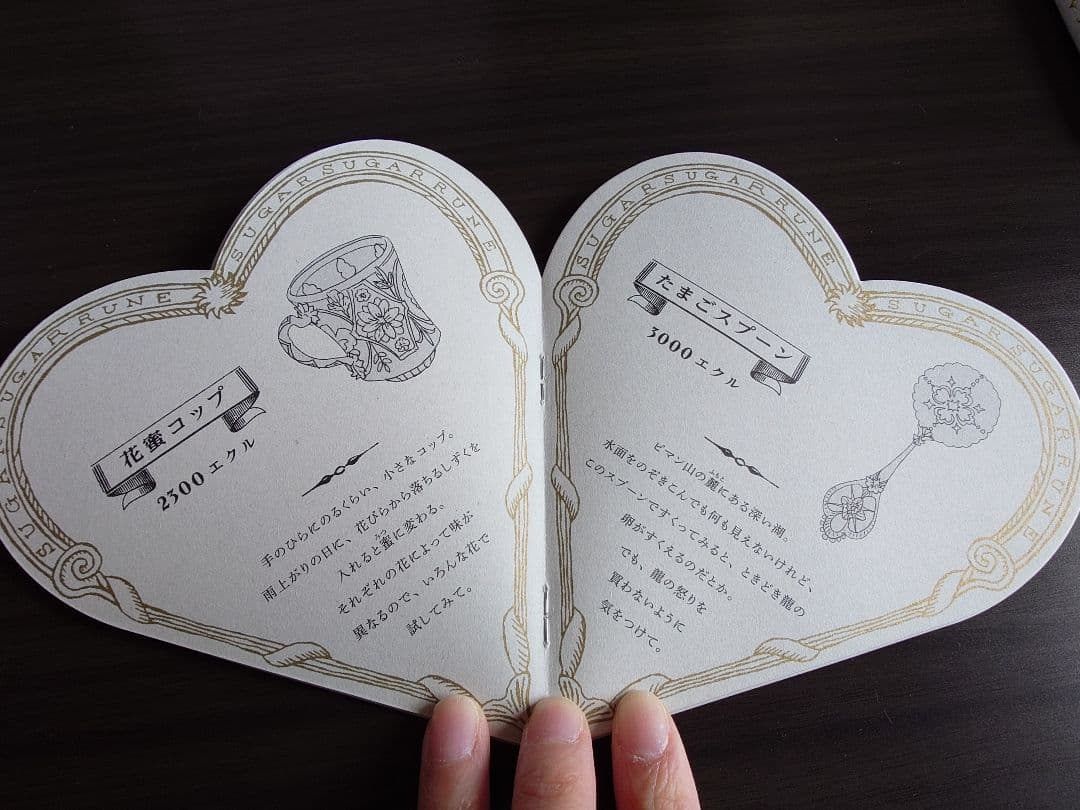 SUGARSUGARRUNE
SUGARSUGARRUNE
花蜜コップ
2300エクル
手のひらにのるくらい、小さなコップ。
雨上がりの日に、花びらから落ちるしずくを
入れると蜜に変わる。
それぞれの花によって味が
異なるので、いろんな花で
試してみて。
SUGARSUGARRUNE
SUGARSUGARRUNE
たまごスプーン
3000エクル
ピマン山の麓にある深い湖。
水面をのぞきこんでも何も見えないけれど、
このスプーンですくってみると、ときどき龍の
卵がすくえるのだとか。
でも、龍の怒りを
買わないように
気をつけて。